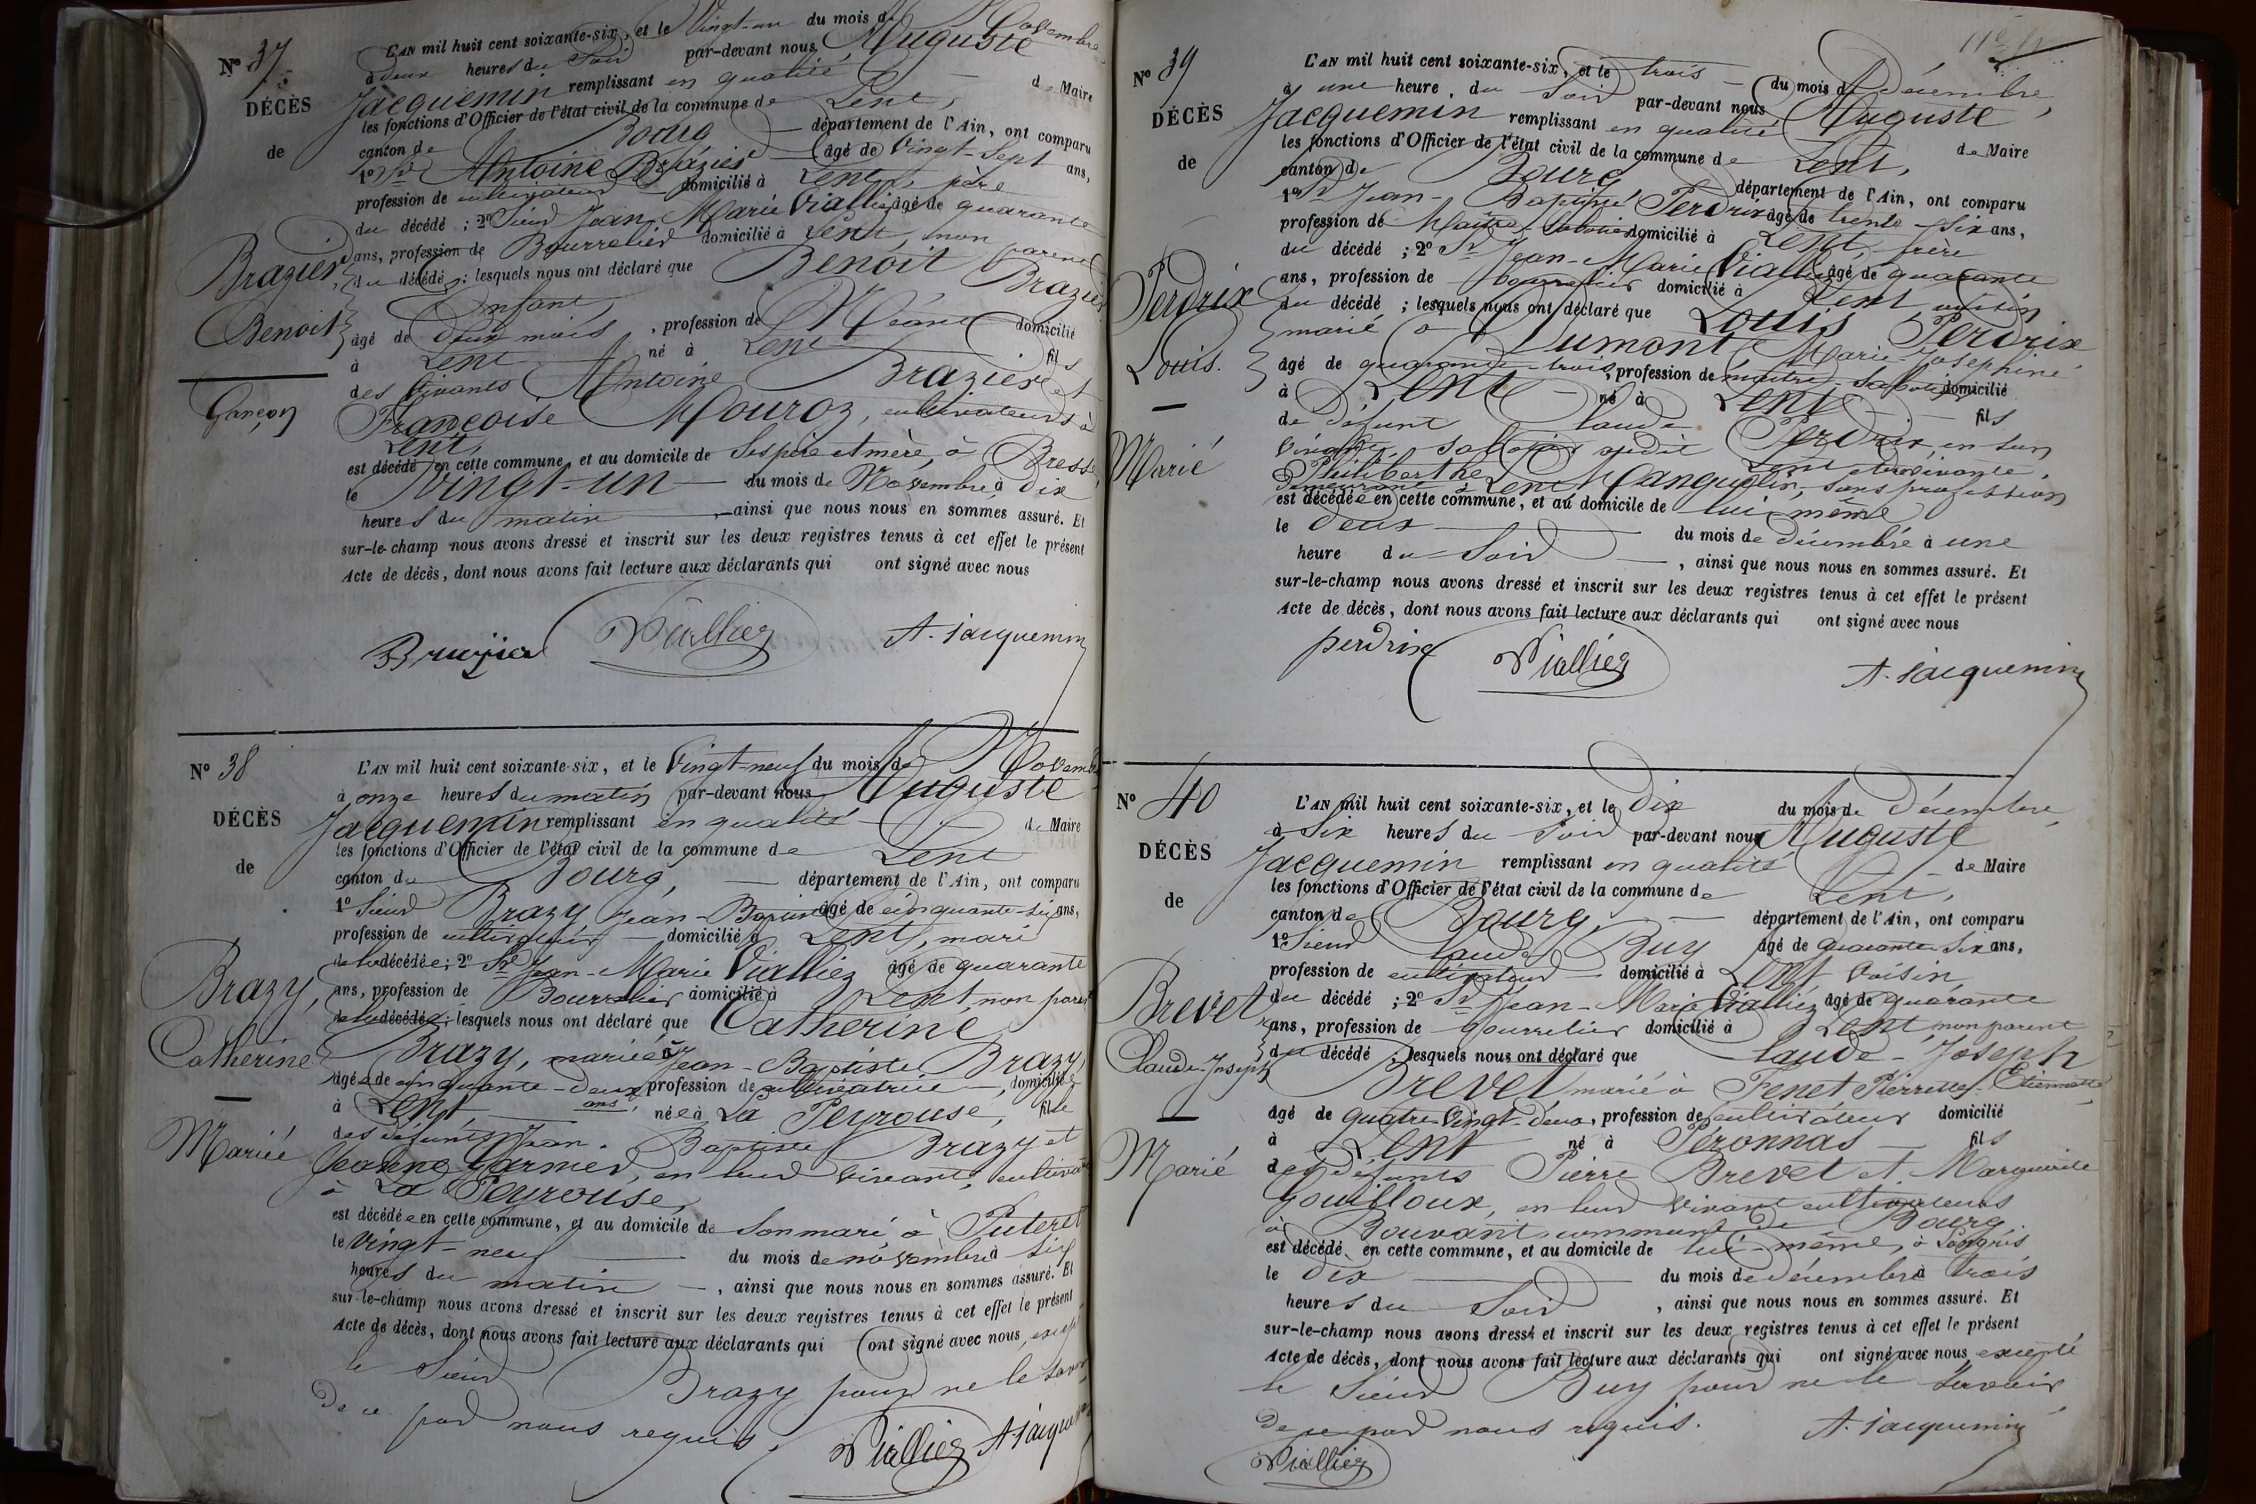 Nº 37
DÉCÈS
de
Brazier,
Benoit
Garçon
L'AN mil huit cent soixante-six, et le Vingt-un du mois de Novembre
à deux heures du Soir par-devant nous Auguste
Jacquemin remplissant en qualité de Maire
les fonctions d'Officier de l'état civil de la commune de Lent,
canton de Bourg département de l'Ain, ont comparu
1º Antoine Brazier âgé de Vingt-Sept ans,
profession de cultivateur domicilié à Lent, père
du décédé ; 2º Sieur Jean Marie Viallier âgé de quarante
ans, profession de Bourrelier domicilié à Lent, non parent
du décédé ; lesquels nous ont déclaré que Benoit Brazier
Enfant,
âgé de deux mois, profession de Néant domicilié
à Lent né à Lent fils
des vivants Antoine Brazier et
Françoise Mouroz, cultivateurs à
Lent,
est décédé en cette commune, et au domicile de Ses père et mère, à Bresse,
le Vingt-un du mois de Novembre à dix
heures du matin, ainsi que nous nous en sommes assuré. Et
sur-le-champ nous avons dressé et inscrit sur les deux registres tenus à cet effet le présent
Acte de décès, dont nous avons fait lecture aux déclarants qui ont signé avec nous
Viallier A. Jacquemin
Nº 38
DÉCÈS
de
Brazy,
Catherine
Mariée
L'AN mil huit cent soixante-six, et le Vingt-neuf du mois de Novembre
à onze heures du matin par-devant nous Auguste
Jacquemin remplissant en qualité de Maire
les fonctions d'Officier de l'état civil de la commune de Lent
canton de Bourg, département de l'Ain, ont comparu
1º Sieur Brazy Jean-Baptiste âgé de cinquante-six ans,
profession de cultivateur domicilié à Lent, mari
de la décédée ; 2º Sr Jean-Marie Viallier âgé de quarante
ans, profession de Bourrelier domicilié à Lent, non parent
de la décédée ; lesquels nous ont déclaré que Catherine
Brazy, mariée à Jean-Baptiste Brazy
âgée de cinquante-deux ans, profession de cultivatrice, domiciliée
à Lent, née à La Peyrouse, fille
des défunts Jean-Baptiste Brazy et
Jeanne Garnier, en leur vivant, cultivateurs
à La Peyrouse,
est décédée en cette commune, et au domicile de Son mari à Puteret
le Vingt-neuf du mois de novembre à six
heures du matin, ainsi que nous nous en sommes assuré. Et
sur-le-champ nous avons dressé et inscrit sur les deux registres tenus à cet effet le présent
Acte de décès, dont nous avons fait lecture aux déclarants qui ont signé avec nous, excepté
le Sieur Brazy pour ne le savoir
de ce par nous requis.
Viallier A. Jacquemin
Nº 39
DÉCÈS
de
Perdrix
Louis.
Marié
L'AN mil huit cent soixante-six, et le trois du mois de décembre,
à une heure du Soir par-devant nous Auguste
Jacquemin remplissant en qualité de Maire
les fonctions d'Officier de l'état civil de la commune de Lent,
canton de Bourg département de l'Ain, ont comparu
1º Sr Jean-Baptiste Perdrix âgé de trente-six ans,
profession de Maître-Sabotier domicilié à Lent, frère
du décédé ; 2º Sr Jean-Marie Viallier âgé de quarante
ans, profession de bourrelier domicilié à Lent, voisin
du décédé ; lesquels nous ont déclaré que Louis Perdrix
marié à Dumont, Marie-Josephine
âgé de quarante-trois, profession de maître-Sabotier domicilié
à Lent né à Lent fils
de défunt Claude Perdrix, en son
vivant, sabotier audit Lent et de vivante,
Philiberthe Manguelin, sans profession
demeurant à Lent
est décédé en cette commune, et au domicile de lui-même
le deux du mois de décembre à une
heure du Soir, ainsi que nous nous en sommes assuré. Et
sur-le-champ nous avons dressé et inscrit sur les deux registres tenus à cet effet le présent
Acte de décès, dont nous avons fait lecture aux déclarants qui ont signé avec nous
perdrix Viallier A. Jacquemin
Nº 40
DÉCÈS
de
Brevet
Claude-Joseph
Marié
L'AN mil huit cent soixante-six, et le Dix du mois de Décembre,
à Six heures du Soir par-devant nous Auguste
Jacquemin remplissant en qualité de Maire
les fonctions d'Officier de l'état civil de la commune de Lent,
canton de Bourg, département de l'Ain, ont comparu
1º Sieur Claude Buy âgé de quarante-six ans,
profession de cultivateur domicilié à Lent voisin
du décédé ; 2º Sr Jean-Marie Viallier âgé de quarante
ans, profession de Bourrelier domicilié à Lent non parent
du décédé ; lesquels nous ont déclaré que Claude-Joseph
Brevet, marié à Fenet Pierrette-Etiennette,
âgé de quatre-vingt-deux, profession de cultivateur domicilié
à Lent né à Péronnas fils
des défunts Pierre Brevet et Marguerite
Gouilloux, en leur vivant cultivateurs
à Bouvant commune de Bourg,
est décédé en cette commune, et au domicile de lui-même, à
le dix du mois de décembre à trois
heures du Soir, ainsi que nous nous en sommes assuré. Et
sur-le-champ nous avons dressé et inscrit sur les deux registres tenus à cet effet le présent
Acte de décès, dont nous avons fait lecture aux déclarants qui ont signé avec nous, excepté
le Sieur Buy pour ne le savoir
de ce par nous requis. A. Jacquemin
Viallier